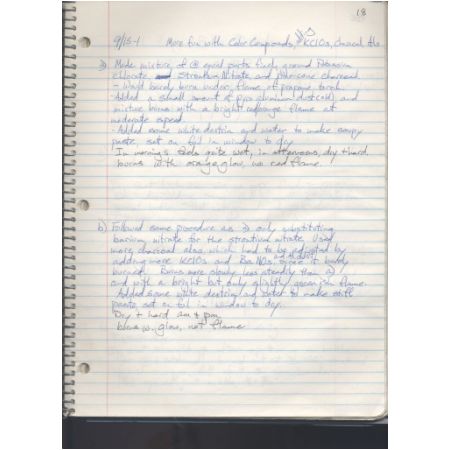 18
9/15-1 More fun with Color Compounds, KClO3, charcoal
a) Made mixture of @ equal parts finely ground Potassium
chlorate, and strontium Nitrate and charcoal
- Would barely burn under flame of propane torch.
- Added a small amount of pyro aluminum dust (old) and
mixture burns with a bright red/orange flame at
moderate speed.
- Added some white dextrin and water to make soupy
paste, set on foil in window to dry
In morning still quite wet, in afternoon, dry + hard.
burns with orange glow, no red flame.
b) Followed same procedure as a) only substituting
barium nitrate for the strontium nitrate. Used
more charcoal also, which had to be adjusted by
adding more KClO3 and BaNO3 since it barely
burned. Burns more slowly, less steadily than a)
and with a bright but only slightly greenish flame.
Added some white dextrin and water to make stiff
paste, set on foil in window to dry.
Dry + hard am + pm
burns w. glow, not flame